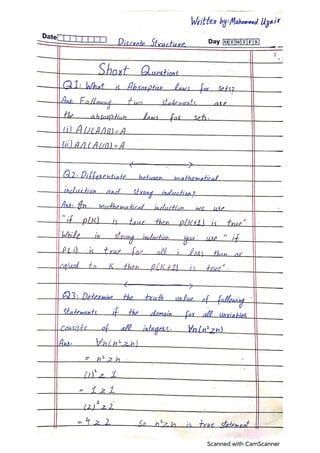 Written by: Muhammad Uzair
Date
Discrete Structure. Day M T W T F S
1.
Short Questions
Q1: What is Absorption laws for sets?
Ans: Following two statements are
the absorption laws for sets.
(i) A∪(A∩B)=A
(ii) A∩(A∪B)=A
Q2: Differentiate between mathematical
induction and strong induction?
Ans: In mathematical induction we use
"if p(K) is true then p(K+1) is true"
While in strong induction you use "if
p(i) is true for all i less than or
equal to K then p(K+1) is true".
Q3: Determine the truth value of following
statements if the domain for all variables
consists of all integers. ∀n(n²≥n)
Ans: ∀n(n²≥n)
= n²≥n
(1)² ≥ 1
= 1 ≥ 1
(2)² ≥ 2
= 4 ≥ 2 So n²≥n is true statement
Scanned with CamScanner